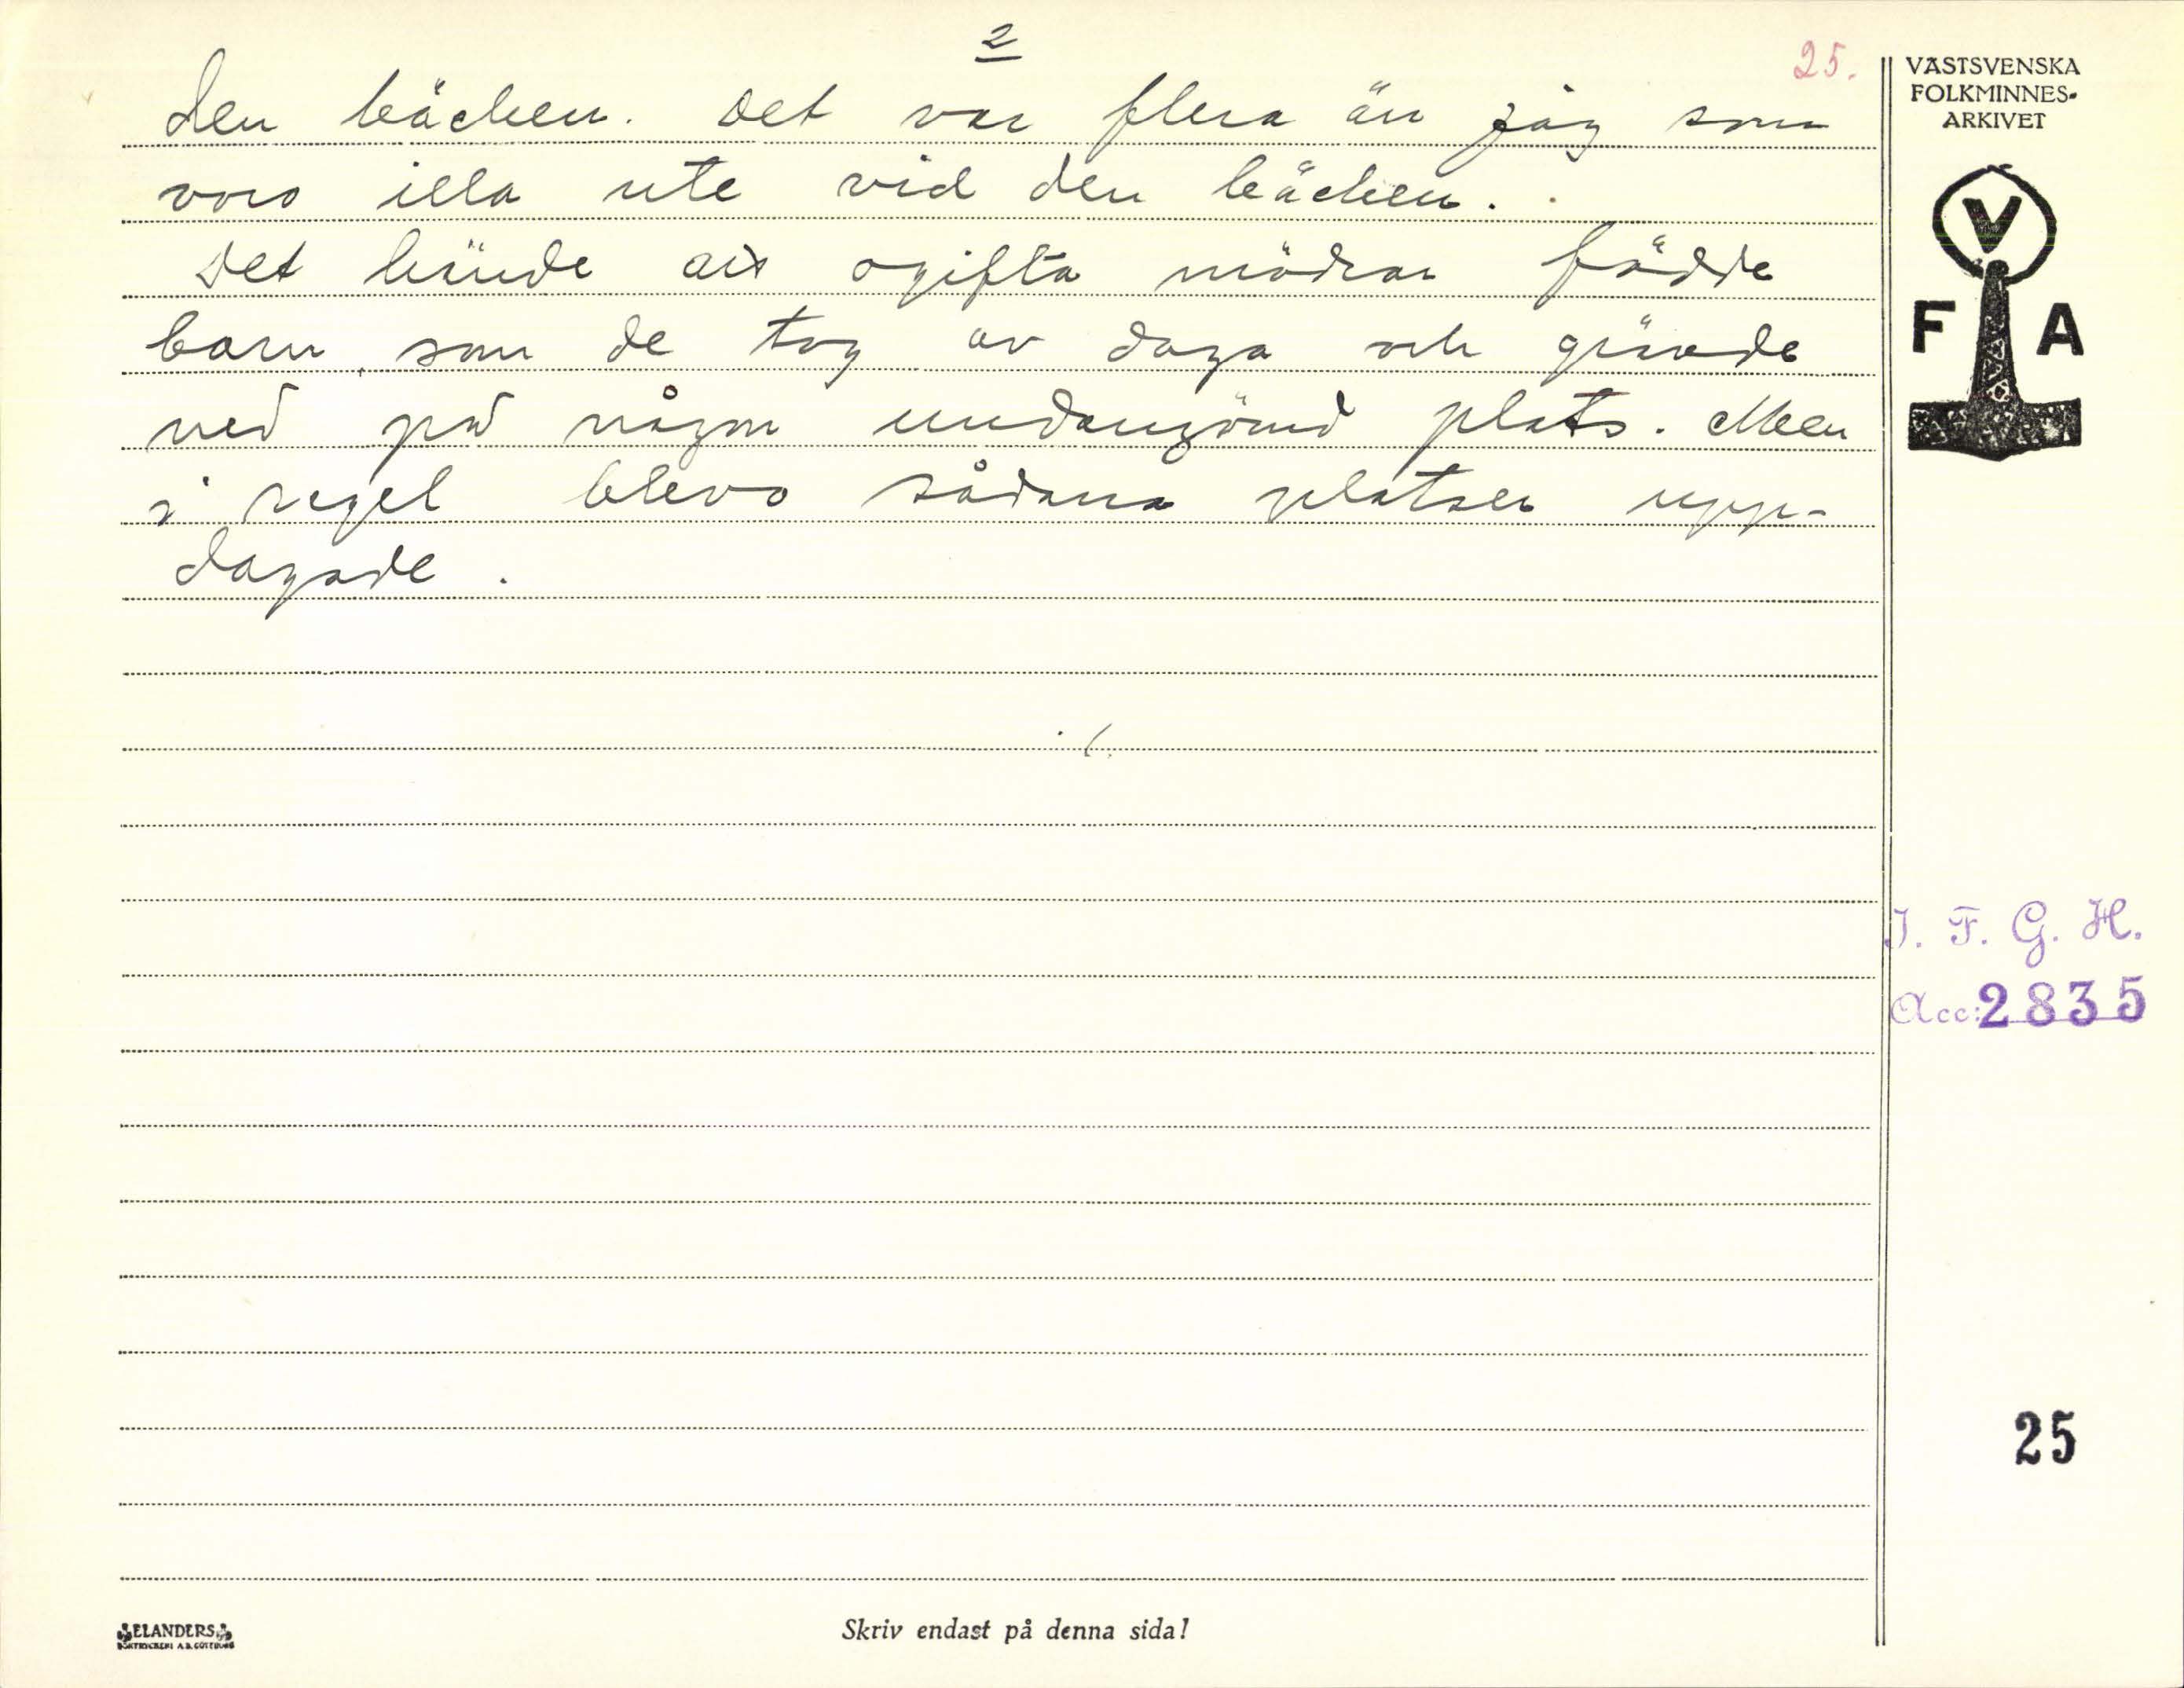 2
25.
den bäcken. Det var flera än jag som
voro illa ute vid den bäcken.
Det hände att ogifta mödrar födde
barn, som de tog av daga och grävde
ned på någon undangömd plats. Men
i regel blevo sådana platser upp-
dagade.
VÄSTSVENSKA
FOLKMINNES-
ARKIVET
V
F A
I. F. G. H.
Acc: 2835
25
ELANDERS
BOKTRYCKERI A.B. GÖTEBORG
Skriv endast på denna sida!